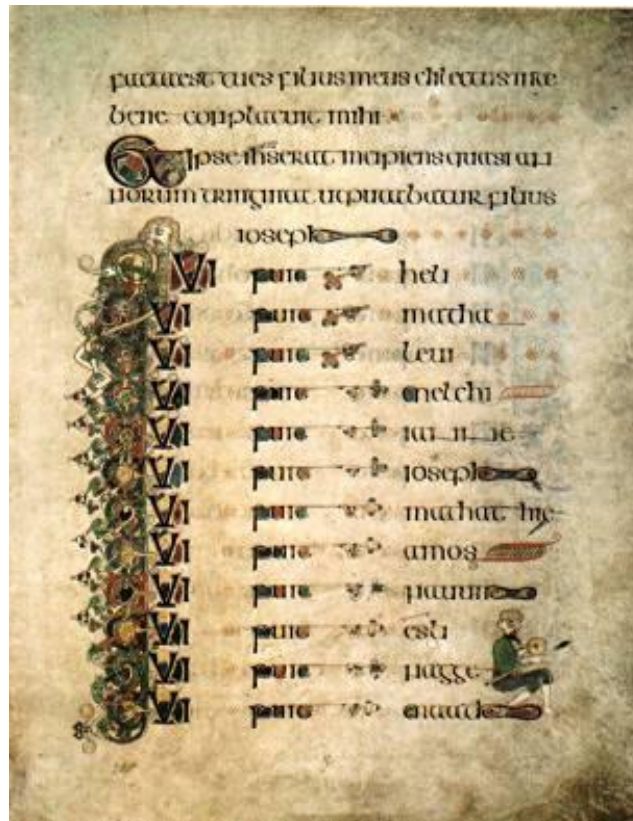 facta est tu es filius meus dilectus in te
bene conplacuit mihi
Et ipse ihs erat incipiens quasi an
norum triginta ut putabatur filius
ioseph
QUI fuit heli
QUI fuit matha
QUI fuit leui
QUI fuit melchi
QUI fuit
QUI fuit ioseph
QUI fuit mathathie
QUI fuit amos
QUI fuit
QUI fuit esli
QUI fuit nagge
QUI fuit